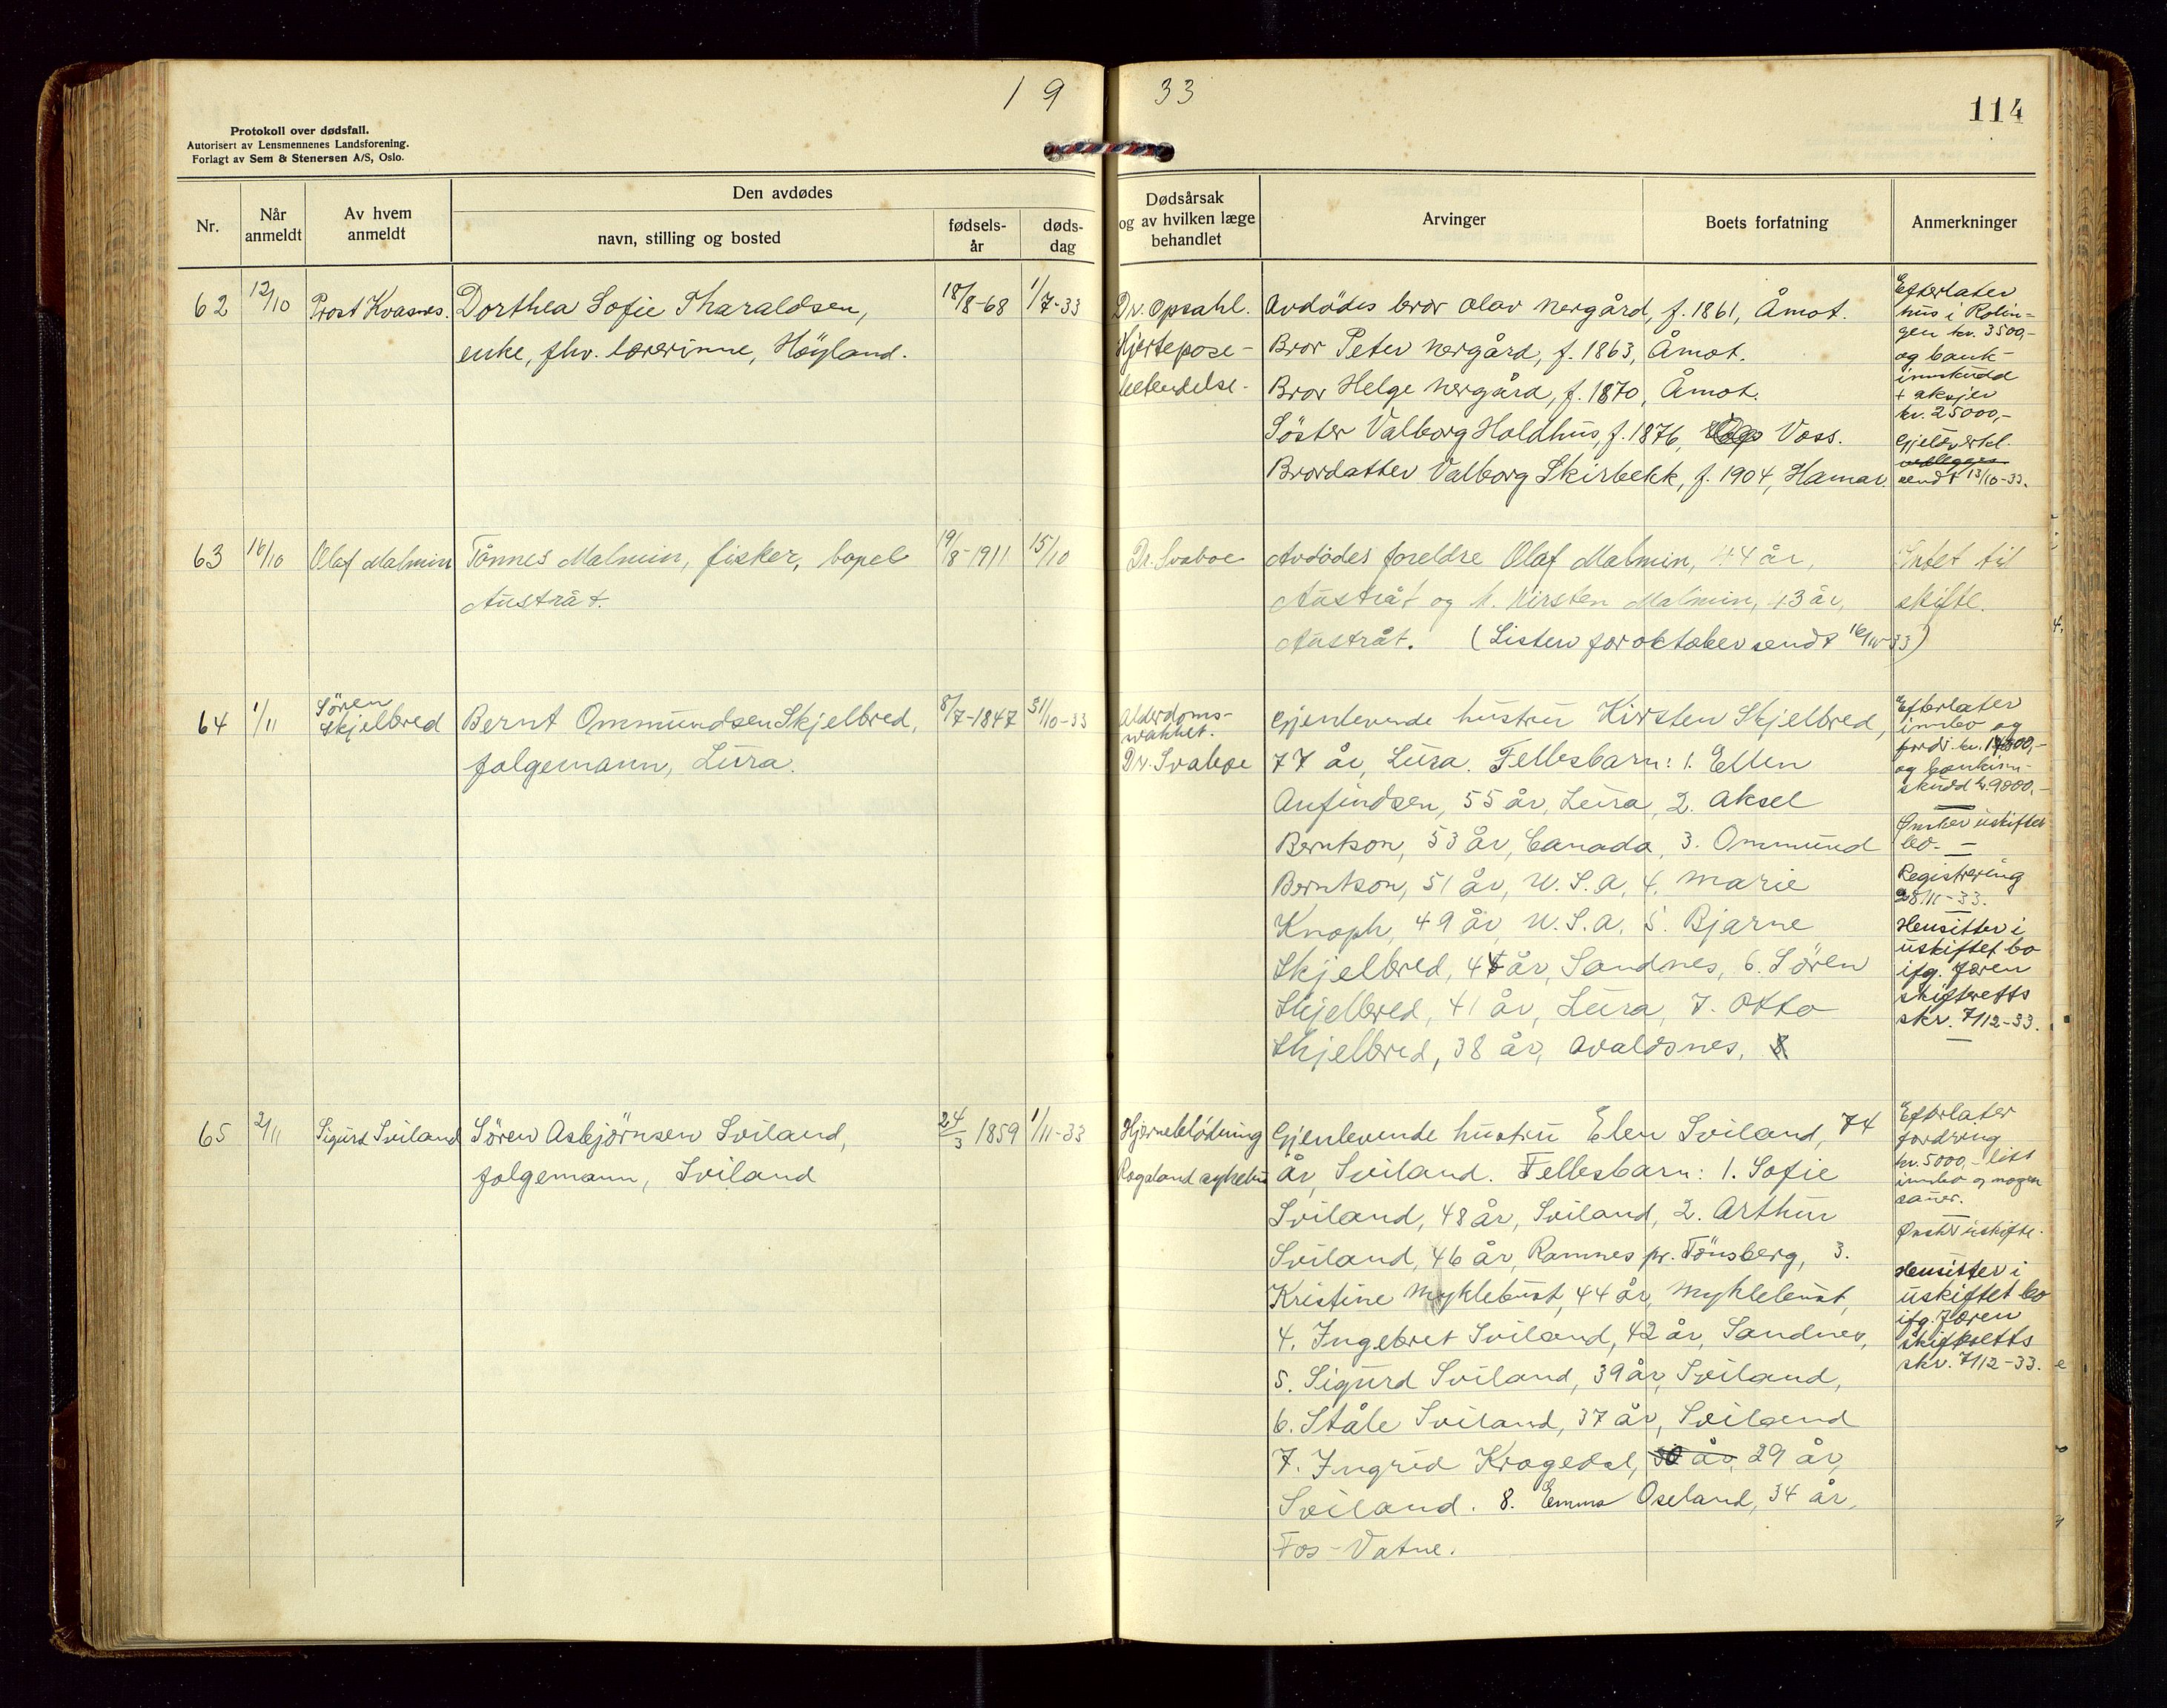 19 33
114
Protokoll over dødsfall.
Autorisert av Lensmennenes Landsforening.
Forlagt av Sem & Stenersen A/S, Oslo.
Nr.
Når anmeldt
Av hvem anmeldt
Den avdødes
navn, stilling og bosted
fødsels-år
døds-dag
Dødsårsak og av hvilken læge behandlet
Arvinger
Boets forfatning
Anmerkninger
62
12/10
Prost Kvasnes.
Dorthea Sofie Tharaldsen,
enke, fhv. lærerinne, Höyland.
18/8-68
1/7-33
Dr. Opsahl.
Hjertepose-
betendelse.
Avdödes bror Olav Nergård, f. 1861, Åmot.
Bror Peter Nergård, f. 1863, Åmot.
Bror Helge Nergård, f. 1870, Åmot.
Söster Valborg Holdhus, f. 1876, Voss.
Brordatter Valborg Skirbekk, f. 1904, Hamar.
Efterlater
hus i
kr. 3500,-
og bank-
innskudd
+ aksjer
kr. 25000,-
Gjeldserkl.
vedlegges
sendt 13/10-33.
63
16/10
Olaf Malmin
Tönnes Malmin, fisker, bopel
Austråt.
19/8-1911
15/10
Dr. Svaboe
Avdödes foreldre Olaf Malmin, 44 år,
Austråt og h. Kirsten Malmin, 43 år,
Austråt. (Listen for oktober sendt 16/10-33)
Intet til
skifte.
64
1/11
Sören
Skjelbred
Bernt Ommundsen Skjelbred,
folgemann, Lura.
8/7-1847
31/10-33
Alderdoms-
svakhet.
Dr. Svaboe
Gjenlevende hustru Kirsten Skjelbred,
77 år, Lura. Fellesbarn: 1. Ellen
Anfindsen, 55 år, Lura, 2. Aksel
Berntson, 53 år, Canada, 3. Ommund
Berntson, 51 år, U.S.A, 4. Marie
Knoph, 49 år, U.S.A, 5. Bjarne
Skjelbred, 44 år, Sandnes, 6. Sören
Skjelbred, 41 år, Lura, 7. Otto
Skjelbred, 38 år, Avaldsnes, 8
Efterlater
innbo og
fordr. kr.
og bankinn-
skudd kr. 9000,-
Önsker uskiftet
bo. -
Registrering
28/11-33.
Hensitter i
uskiftet bo
ifg. Jæren
skifteretts
skr. 7/12-33.
65
2/11
Sigurd Sviland
Sören Asbjörnsen Sviland,
folgemann, Sviland
24/3 1859
1/11-33
Hjerneblödning
Rogaland sykehus
Gjenlevende hustru Elen Sviland, 74
år, Sviland. Fellesbarn: 1. Sofie
Sviland, 48 år, Sviland, 2. Arthur
Sviland, 46 år, Ramnes pr. Tönsberg, 3.
Kristine Myklebust, 44 år, Myklebust,
4. Ingebret Sviland, 42 år, Sandnes,
5. Sigurd Sviland, 39 år, Sviland,
6. Ståle Sviland, 37 år, Sviland
7. Ingrid Kragedal, 30 år, 29 år,
Sviland. 8. Emma Oseland, 34 år,
Fos-Vatne.
Efterlater
fordring
kr. 5000,- litt
innbo og nogen
sauer.
Önsker uskifte.
Hensitter i
uskiftet bo
ifg. Jæren
skifteretts
skr. 7/12-33.